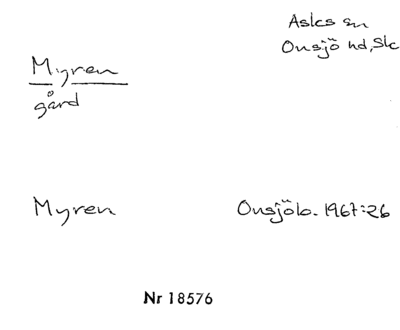 Asks sn
Onsjö hd, Sk
Myren
gård
Myren Onsjöb. 1967:26
Nr 18576